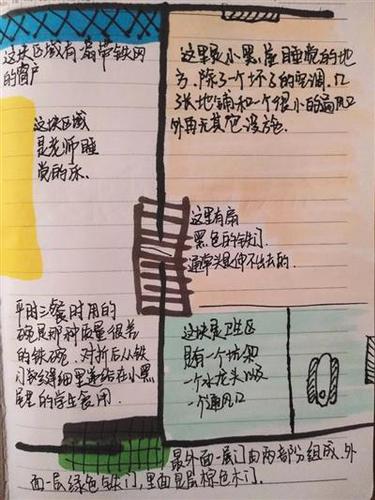 这块区域有扇带铁网
的窗户
这块区域
是老师睡
觉的床.
平时三餐时用的
碗是那种质量很差
的铁碗.对折后从铁
门缝得细里递给在小黑
屋里的学生食用.
这里是小黑屋睡觉的地
方.除了一个坏了的空调.几
张地铺和一个很小的通风口
外再无其它设施.
这里有扇
黑色的铁门.
通常头是伸不出去的.
这块是卫生区
只有一个坑架
一个水龙头以及
一个通风口
最外面一层门由两部分组成.外
面一层绿色铁门,里面是层棕色木门.